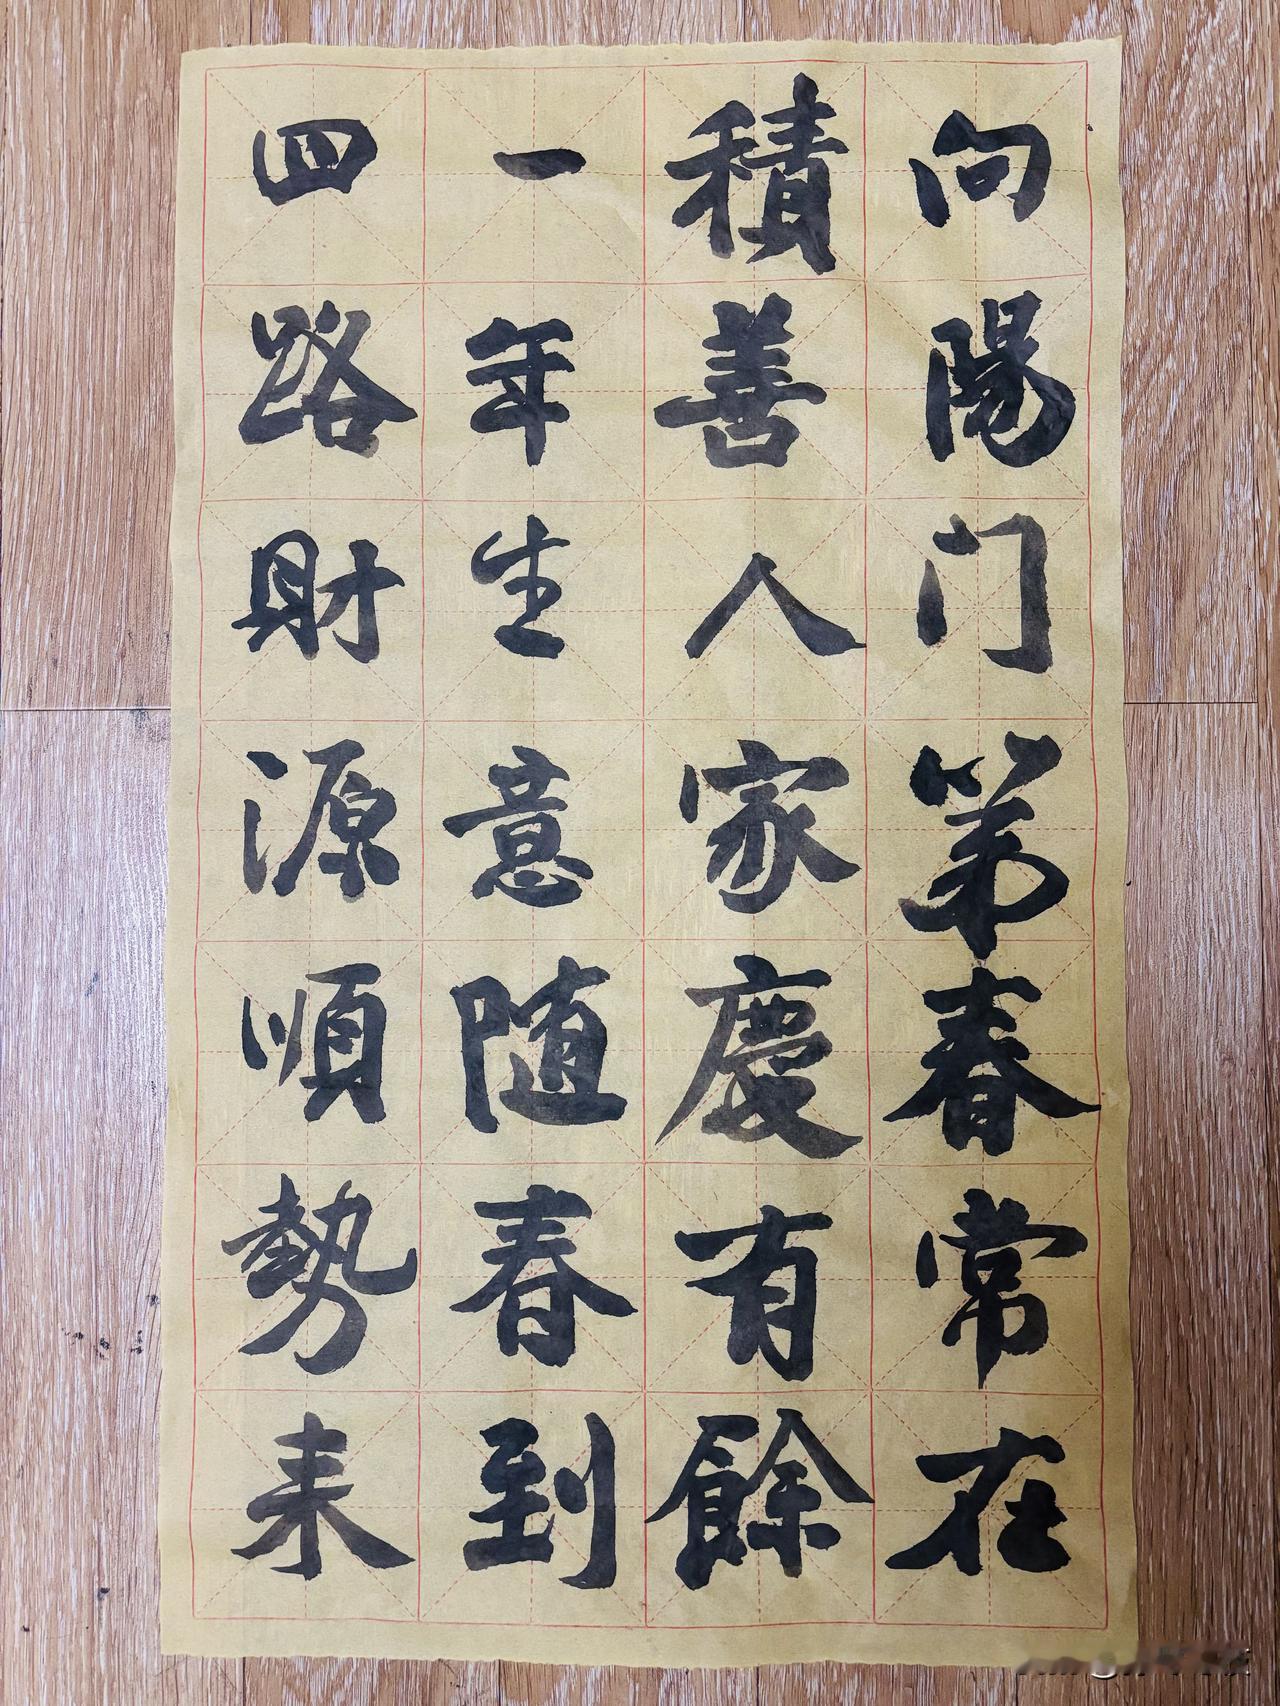 向陽门第春常在
積善人家慶有餘
一年生意随春到
四路財源順勢来